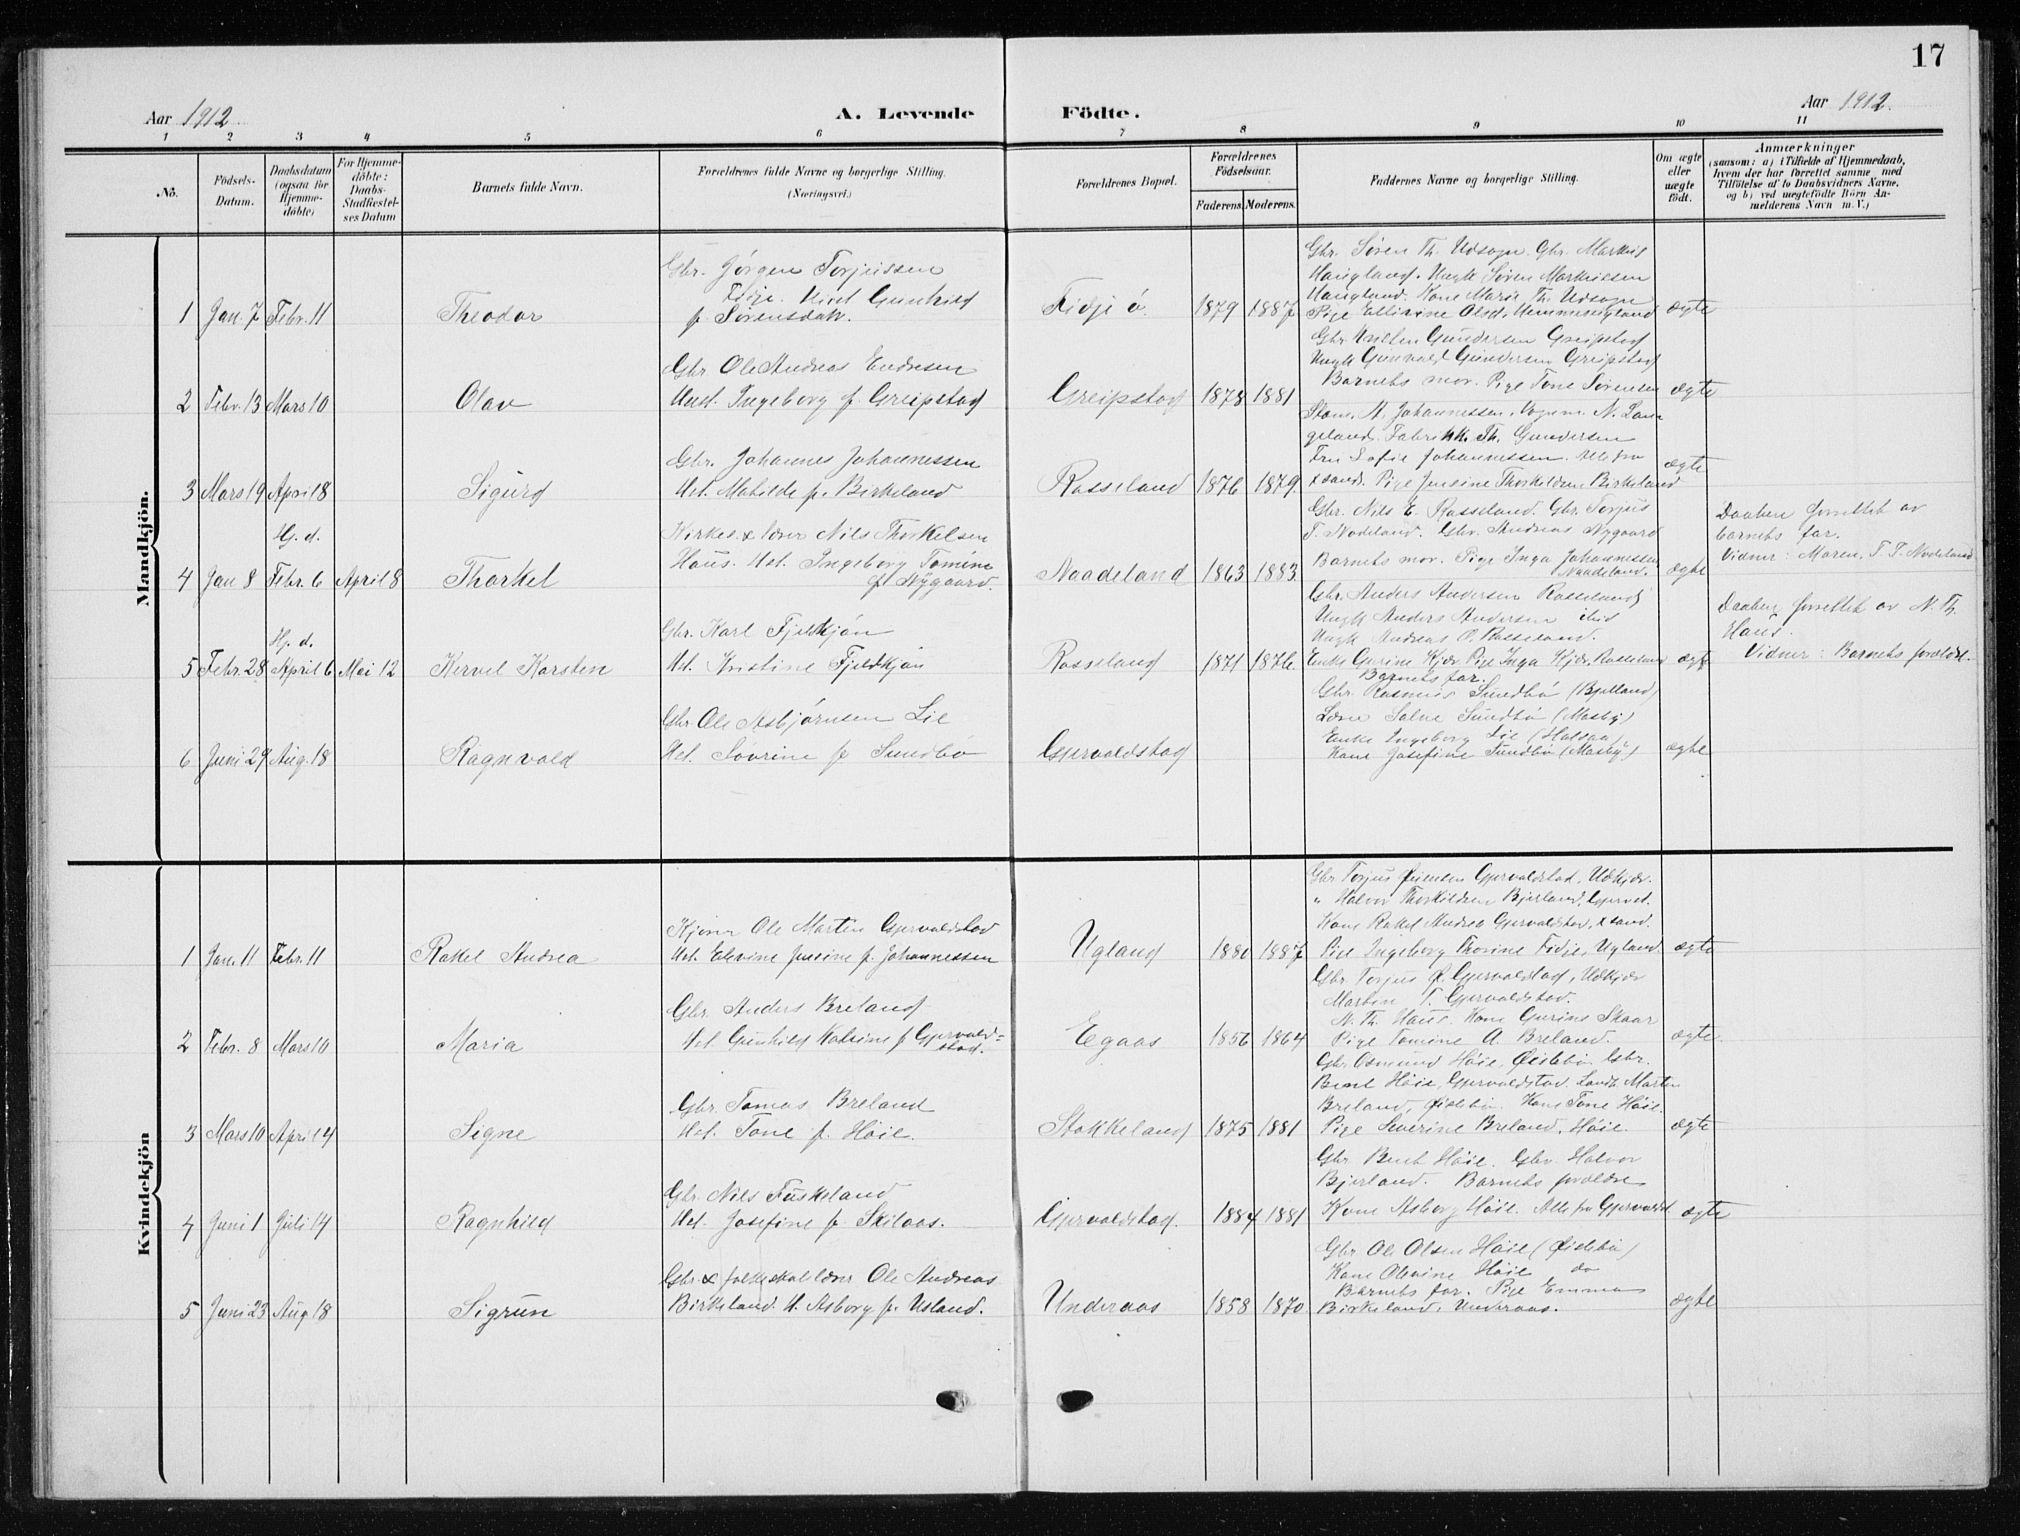 17
Aar 1912
A. Levende
Födte.
Aar 1912.
1 2 3 4 5 6 7 8 9 10 11
No.
Födsels-
Datum.
Daabsdatum
(ogsaa for
Hjemme-
döbte)
For Hjemme-
döbte:
Daabs-
Stadfæstel-
ses Datum
Barnets fulde Navn.
Forældrenes fulde Navne og borgerlige Stilling.
(Næringsvei.)
Forældrenes Bopæl.
Forældrenes
Födselsaar.
Faderens. Moderens.
Faddernes Navne og borgerlige Stilling.
Om ægte
eller
uægte
födt.
Anmærkninger
(saasom: a) i Tilfælde af Hjemmedaab,
hvem der har forrettet samme, med
Tilföielse af to Daabsvidners Navne,
og b) ved uægtefödte Börn An-
melderens Navn m. V.)
Mandkjön.
1 Jan. 7 Febr. 11
Theodor
Gbr. Jörgen Torjussen
Fidje. Gunhild
f. Sörensdatr.
Fidjeö 1879 1887
Gbr. Sören Th. Udsogn. Gbr. Markus
Haugland. Ungk Sören Markussen
Haugland. Kone Marie Th. Udsogn
Pige Ellivine Olsd.
ægte
2 Febr. 13 Mars 10
Olav
Gbr Ole Andreas Endresen
Ingeborg f. Greipstad
Greipstad 1878 1881
Gundersen Greipstad
Ungk Gunvald Gundersen Greipstad
Barnets mor. Pige Tone Sørensen
ægte
3 Mars 19 April 8
Sigurd
Gbr. Johannes Johannessen
Het. Mathilde f. Birkeland
Rosseland 1876 1879.
Johannessen, Vognm. N. Lan-
geland. Fabrikk. Th. Gundersen
Fru Sofie Johannessen. Alle fra
Xsand. Pige Jensine Thorkildsen Birkeland
ægte
Hj. d.
4 Jan 8 Febr. 6 April 8
Thorkel
Kirkes. & lærer Nils Thorkelsen
Haus. Het. Ingeborg Tomine
f Nygaard.
Naadeland 1863 1883.
Gbr. Nils E. Rosseland. Gbr. Torjus
T. Nodeland. Gbr. Andreas Nygaard
Barnets mor. Pige Inga Johannessen
Naadeland.
ægte
Daaben forrettet av
barnets far.
Vidner: Maren, T. T. Nodeland
Hj. d.
5 Febr. 28 April 6 Mai 12
Kervel Karsten
Gbr. Karl Fjeldkjön
Het. Kristine Fjeldkjön
Rosseland 1871 1876.
Gbr. Anders Andersen Rosseland
Ungk Anders Andersen ibid
Ungk Andreas O. Rosseland.
Enke Gurine Kjær Pige Inga Kjær Rosseland
Barnets far.
ægte
Daaben forrettet av N. Th.
Haus.
Vidner: Barnets foreldre.
6 Juni 29 Aug. 18
Ragnvald
Gbr. Ole Asbjörnsen Lie
Het. Sovrine f Sundbö
Gjervaldstad
Gbr. Rasmus Sundbö (Bjelland)
Salve Sundbö (Mosby)
Enke Ingeborg Lie
Kone Josefine Sundbö (Mosby)
ægte
Kvindekjön
1 Jan. 11 Febr. 11
Rakel Andrea
Ole Martin Gjervaldstad
Het. Elevine Jensine f. Johannessen
Ugland 1880 1887
Gbr. Torjus Gjervaldstad, Udkjær.
" Halvor Thorkildsen Bjerland,
Kone Rakel Andrea Gjervaldstad, Xsand.
Pige Ingeborg Thorine Fidje, Ugland.
ægte
2 Febr. 8 Mars 10
Maria
Gbr. Anders Breland
Het. Gunhild Katrine f Gjervald=
stad.
Egaas 1856 1864
Gbr. Torjus Gjervaldstad, Udkjær
Martin T. Gjervaldstad.
N. Th. Haus. Kone Gurine Skaar
Pige Tomine A. Breland.
ægte.
3 Mars 10 April 4
Signe
Gbr. Tomas Breland
Het. Tone f. Höie.
Stokkeland 1875 1881
Gbr. Osmund Höie, Öislebö, Gbr.
Bent Höie, Gjervaldstad. Landb. Martin
Breland, Öislebö. Kone Tone Höie.
Pige Severine Breland, Höie.
ægte
4 Juni 1 Juli 14
Ragnhild
Gbr. Nils Fuskeland
Het. Josefine f. Skilaas.
Gjervaldstad. 1884 1881
Gbr. Bent Höie. Gbr. Halvor
Bjerland. Barnets foreldre
Kone Asborg Höie. Alle fra Gjervaldst
ægte
5 Juni 23 Aug 18
Sigrun
Gbr & folkeskolelærer Ole Andreas
Birkeland. H. Asborg f. Usland.
Underaas 1858 1870
Gbr Ole Olsen Höie (Öislebö)
Kone Olevine Höie do
Barnets far. Pige Emma
Birkeland, Underaas.
ægte